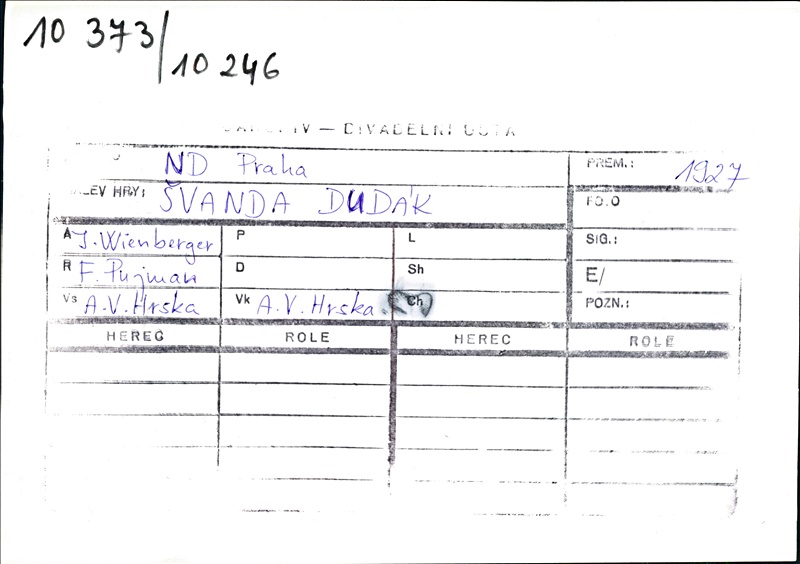 10 373/10 246
DIVADELNÍ
ND Praha
PREM.: 1927
HRY: ŠVANDA DUDÁK
A J. Wienberger P L
SIG.:
R F. Pujman D Sh
E/
Vs A.V. Hrska Vk A.V. Hrska Ch
POZN.:
HEREC ROLE HEREC ROLE